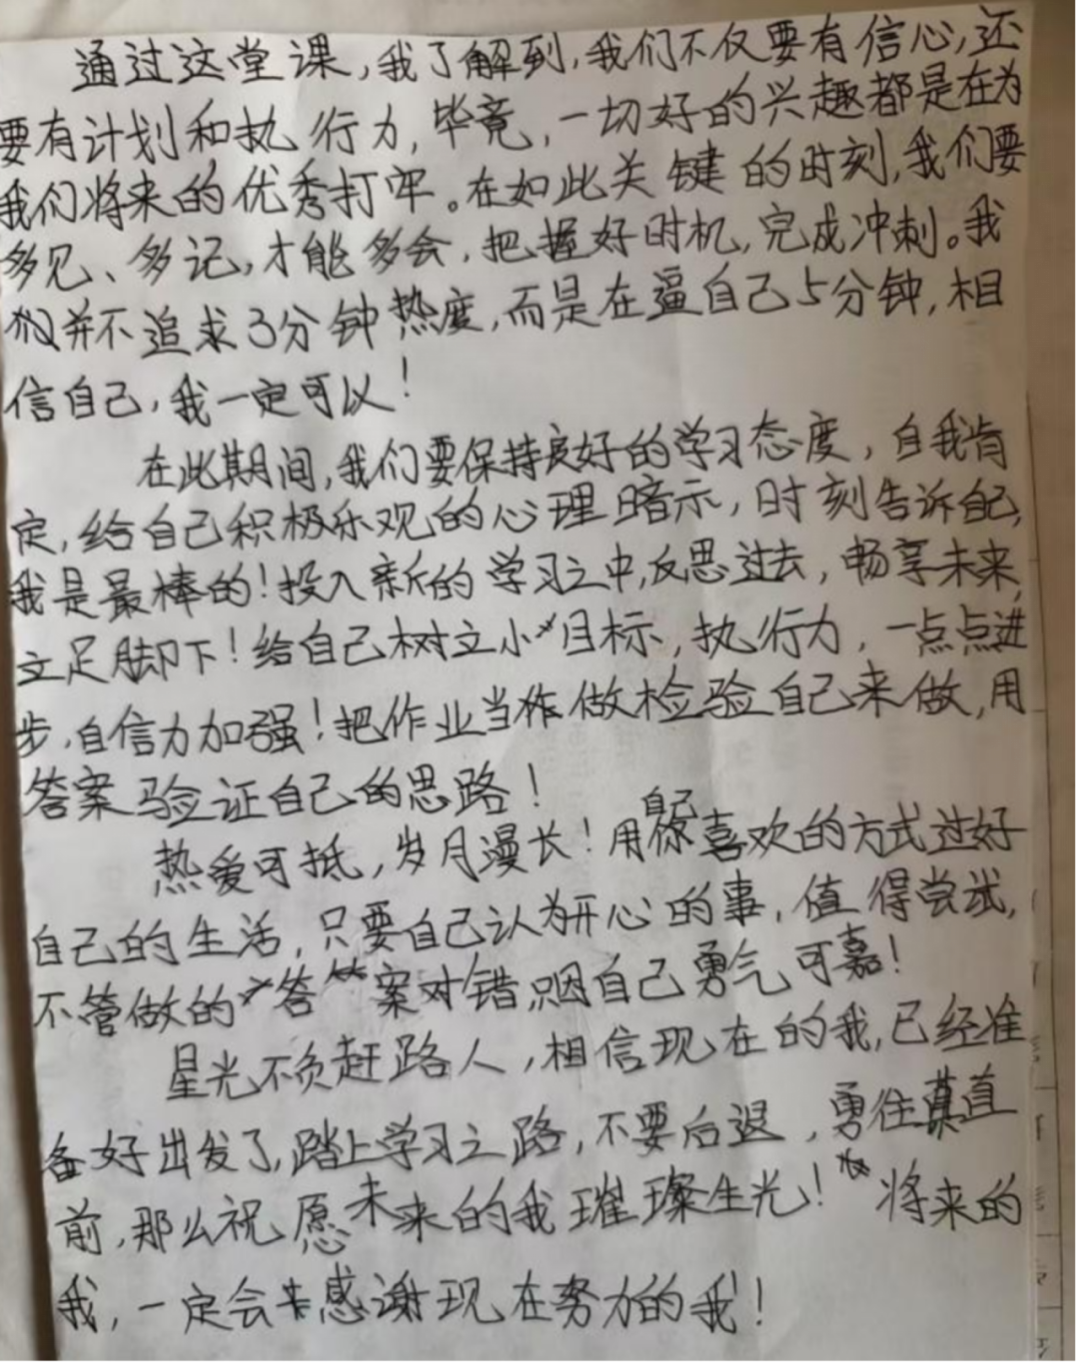 通过这堂课,我了解到,我们不仅要有信心,还
要有计划和执行力,毕竟,一切好的兴趣都是在为
我们将来的优秀打牢。在如此关键的时刻,我们要
多见、多记,才能多会,把握好时机,完成冲刺。我
们并不追求3分钟热度,而是在逼自己5分钟,相
信自己,我一定可以!
在此期间,我们要保持良好的学习态度,自我肯
定,给自己积极乐观的心理暗示,时刻告诉自己,
我是最棒的!投入新的学习之中,反思过去,畅享未来,
立足脚下!给自己树立小目标,执行力,一点点进
步,自信力加强!把作业当作做检验自己来做,用
答案验证自己的思路!
热爱可抵,岁月漫长!用自己喜欢的方式过好
自己的生活,只要自己认为开心的事,值得尝试,
不管做的答案对错,因自己勇气可嘉!
星光不负赶路人,相信现在的我,已经准
备好出发了,踏上学习之路,不要后退,勇往直
前,那么祝愿未来的我璀璨生光!将来的
我,一定会感谢现在努力的我!